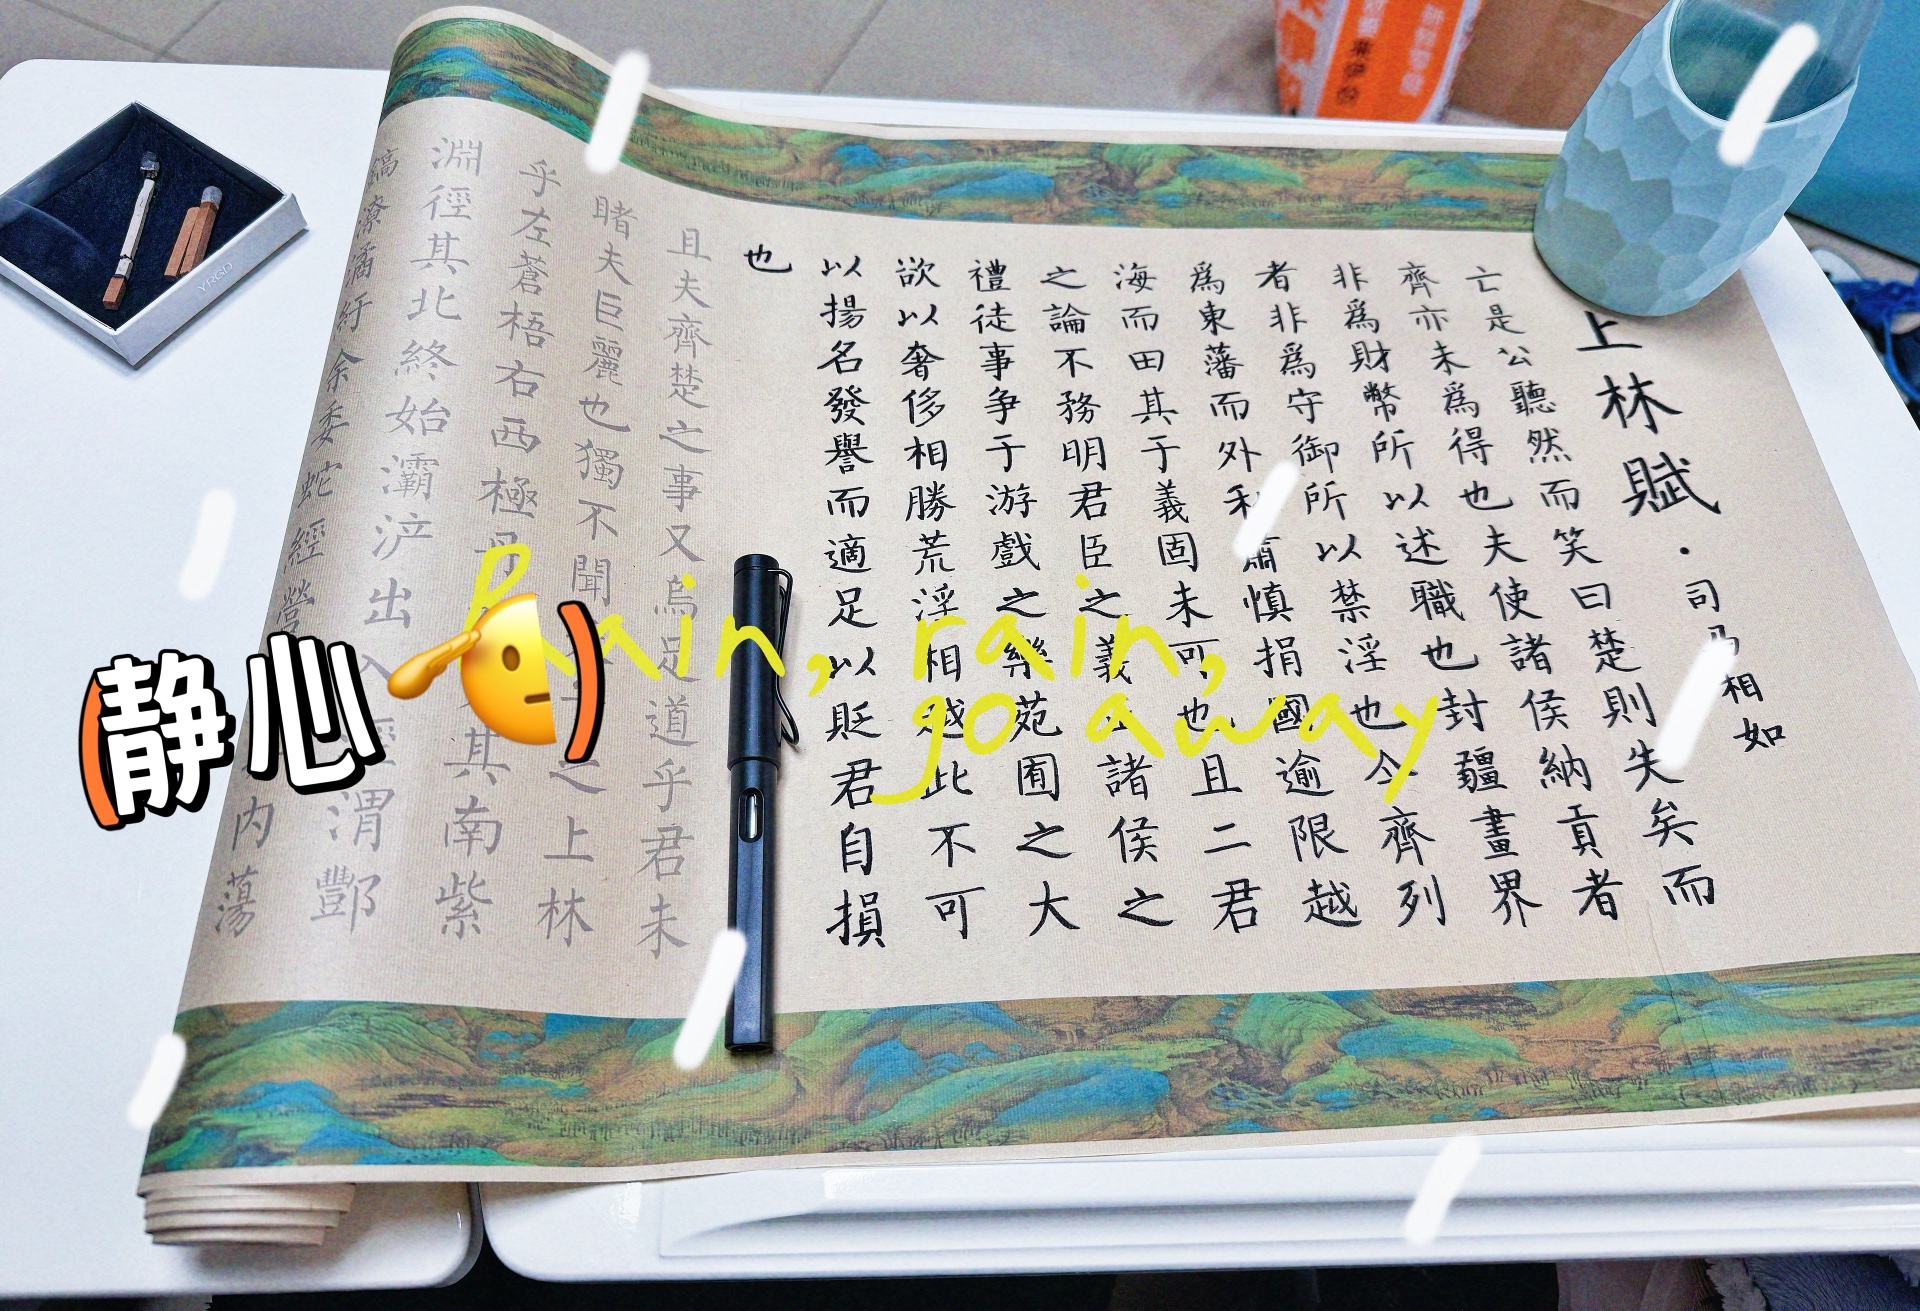 上林賦·司馬相如
亡是公聽然而笑曰楚則失矣而
齊亦未爲得也夫使諸侯納貢者
非爲財幣所以述職也封疆畫界
者非爲守御所以禁淫也今齊列
爲東藩而外私肅慎捐國逾限越
海而田其于義固未可也且二君
之論不務明君臣之義諸侯之
禮徒事争于游戲之樂苑囿之大
欲以奢侈相勝荒淫相越此不可
以揚名發譽而適足以貶君自損
也
且夫齊楚之事又烏足道乎君未
睹夫巨麗也獨不聞之上林
乎左蒼梧右西極丹其南紫
淵徑其北終始灞浐出入渭酆
鎬潦潏紆余委蛇經營内蕩
Rain, rain,
go away
(静心🫡)
YRGD